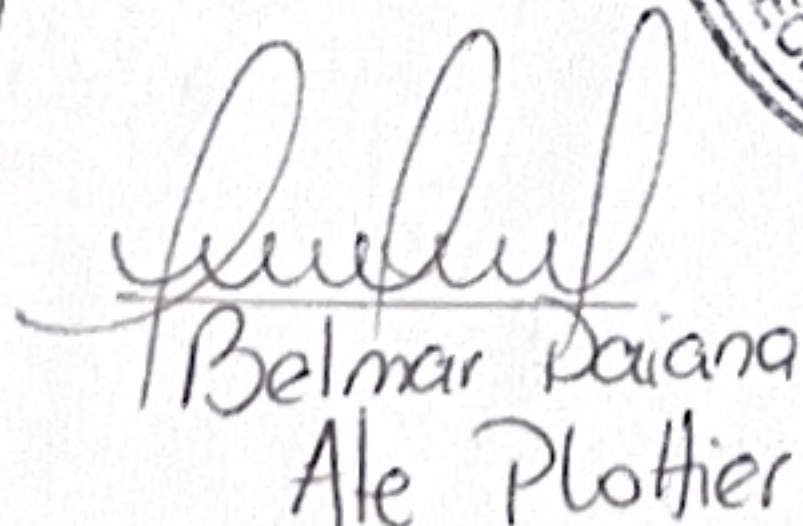 Belmar Daiana
Ate Plottier